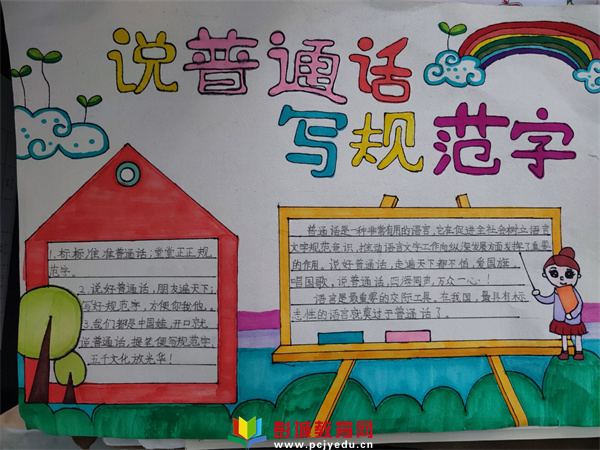 说普通话
写规范字
1.标标准准普通话;堂堂正正规
范字。
2.说好普通话,朋友遍天下;
写好规范字,方便你我他。
3.我们都是中国娃,开口就
说普通话,提笔便写规范字,
五千文化放光华!
普通话是一种非常有用的语言,它在促进全社会树立语言
文字规范意识,推动语言文字工作向纵深发展方面发挥了重要
的作用。说好普通话,走遍天下都不怕,爱国旗,
唱国歌,说普通话,四海同声,万众一心!
语言是最重要的交际工具,在我国,最具有标
志性的语言就莫过于普通话了。
彭城教育网
www.pcjyedu.cn